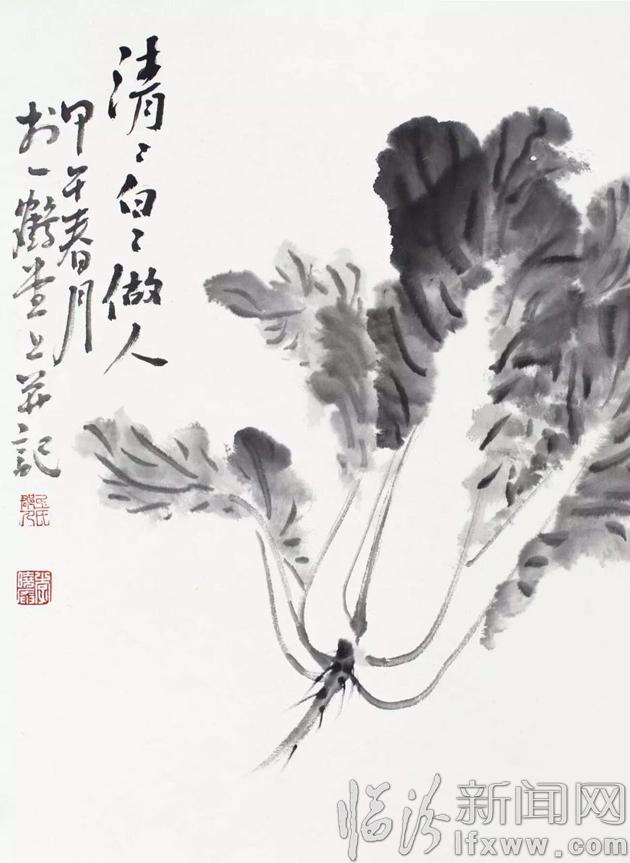 清〻白〻做人
甲午春月
於一鶴堂上并記
临汾新闻网
lfxww.com